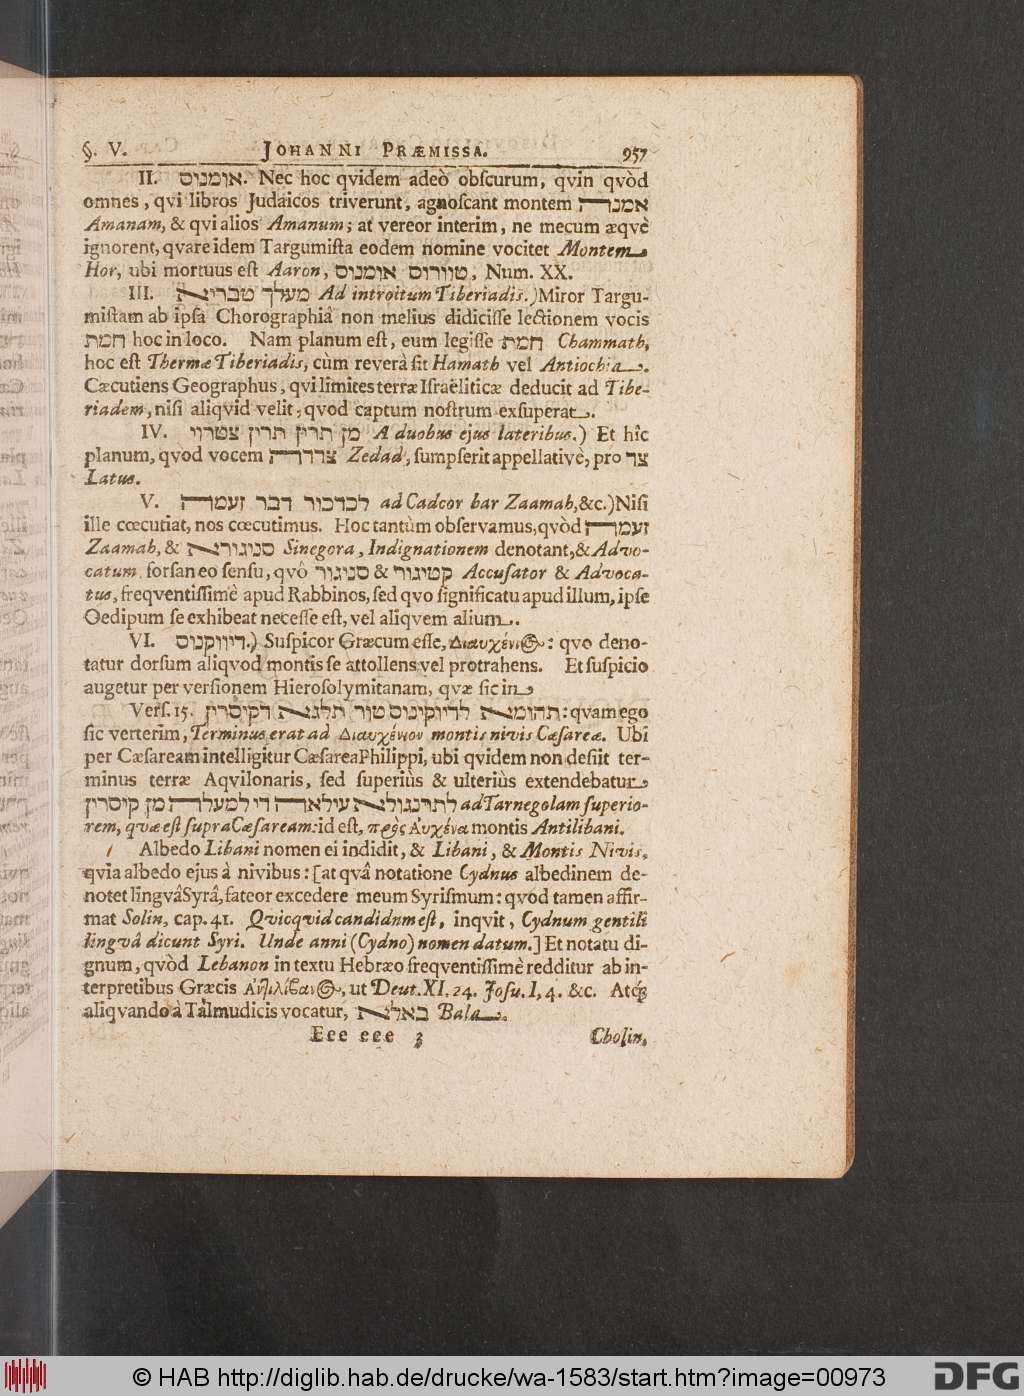 §. V. JOHANNI PRÆMISSA. 957
II. אומנוס. Nec hoc qvidem adeò obſcurum, qvin qvòd
omnes, qvi libros Judaicos triverunt, agnoſcant montem אמנה
Amanam, & qvi alios Amanum; at vereor interim, ne mecum æqvè
ignorent, qvare idem Targumiſta eodem nomine vocitet Montem
Hor, ubi mortuus eſt Aaron, טוורוס אומנוס, Num. XX.
III. מעלך טבריא Ad introitum Tiberiadis.) Miror Targu-
miſtam ab ipſâ Chorographiâ non melius didiciſſe lectionem vocis
חמת hoc in loco. Nam planum eſt, eum legiſſe חמת Chammath,
hoc eſt Thermæ Tiberiadis, cùm reverâ ſit Hamath vel Antiochia.
Cæcutiens Geographus, qvi limites terræ Iſraëliticæ deducit ad Tibe-
riadem, niſi aliqvid velit, qvod captum noſtrum exſuperat.
IV. מן תרין תרין צטרוי A duobus ejus lateribus.) Et hîc
planum, qvòd vocem צדדה Zedad, ſumpſerit appellativè, pro צד
Latus.
V. לכדכור דבר זעמה ad Cadcor bar Zaamah, &c.) Niſi
ille cœcutiat, nos cœcutimus. Hoc tantùm obſervamus, qvòd זעמה
Zaamah, & סניגורא Sinegora, Indignationem denotant, & Advo-
catum forſan eo ſenſu, qvô סניגור & קטיגור Accuſator & Advoca-
tus, freqventiſſimè apud Rabbinos, ſed qvo ſignificatu apud illum, ipſe
Oedipum ſe exhibeat neceſſe eſt, vel aliqvem alium.
VI. דיווקנוס.) Suſpicor Græcum eſſe, Διαυχένιος: qvo deno-
tatur dorſum aliqvod montis ſe attollens vel protrahens. Et ſuſpicio
augetur per verſionem Hieroſolymitanam, qvæ ſic in
Verſ. 15. תהומא לדיוקינוס טור תלגא דקיסרין: qvam ego
ſic verterim, Terminus erat ad Διαυχένιον montis nivis Cæſareæ. Ubi
per Cæſaream intelligitur Cæſarea Philippi, ubi qvidem non deſiit ter-
minus terræ Aqvilonaris, ſed ſuperiùs & ulteriùs extendebatur
לתרנגולא עילאה די למעלה מן קיסרין ad Tarnegolam ſuperio-
rem, qvæ eſt ſupra Cæſaream: id eſt, πρὸς Αυχένα montis Antilibani.
Albedo Libani nomen ei indidit, & Libani, & Montis Nivis,
qvia albedo ejus à nivibus: [at qvâ notatione Cydnus albedinem de-
notet lingvâ Syrâ, fateor excedere meum Syriſmum: qvod tamen affir-
mat Solin, cap. 41. Qvicqvid candidum eſt, inqvit, Cydnum gentili
lingvâ dicunt Syri. Unde anni (Cydno) nomen datum.] Et notatu di-
gnum, qvòd Lebanon in textu Hebræo freqventiſſimè redditur ab in-
terpretibus Græcis Ἀντιλίβανος, ut Deut. XI, 24. Joſu. I, 4. &c. Atq;
aliqvando à Talmudicis vocatur, באלא Bala.
Eee eee 3 Cholin,
© HAB http://diglib.hab.de/drucke/wa-1583/start.htm?image=00973
DFG